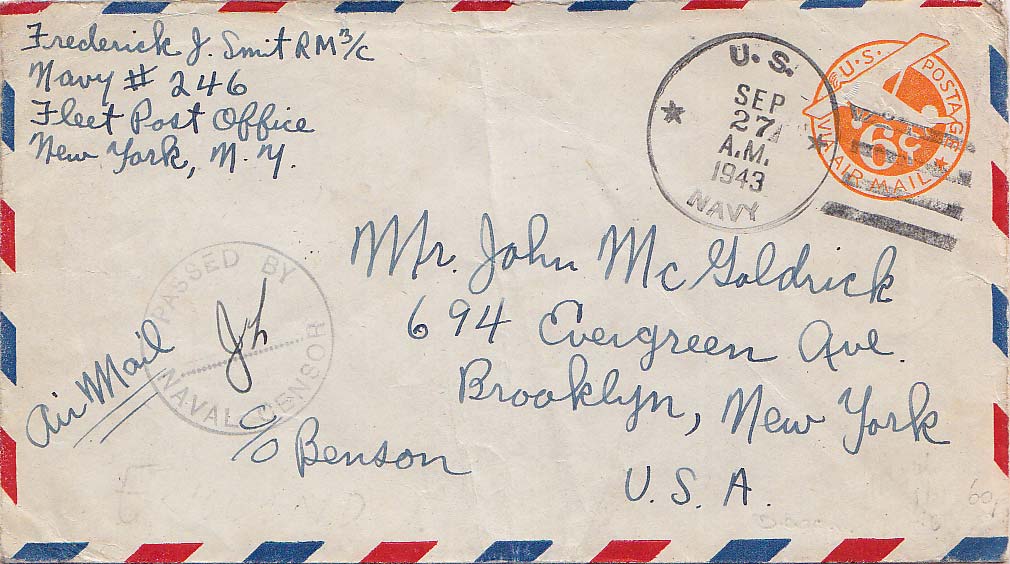 Frederick J. Smit RM 3/c
Navy # 246
Fleet Post Office
New York, N.Y.
U.S.
SEP
27
A.M.
1943
NAVY
U.S. POSTAGE
6¢
VIA AIR MAIL
Mr. John McGoldrick
694 Evergreen Ave.
Brooklyn, New York
U.S.A.
PASSED BY
NAVAL CENSOR
Air Mail
c/o Benson